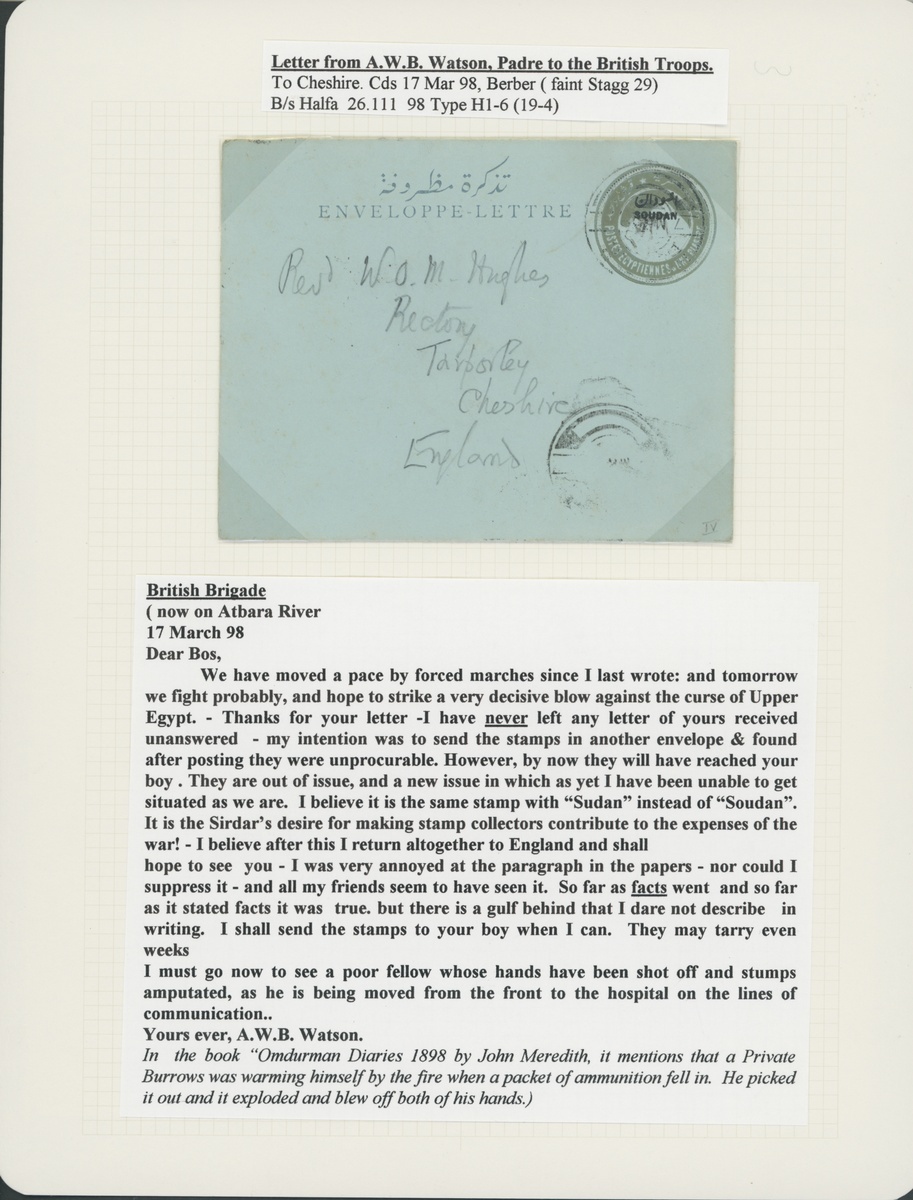 Letter from A.W.B. Watson, Padre to the British Troops.
To Cheshire. Cds 17 Mar 98, Berber ( faint Stagg 29)
B/s Halfa 26.111 98 Type H1-6 (19-4)
تذكرة مظروفة
ENVELOPPE-LETTRE
السودان
SOUDAN
POSTES EGYPTIENNES
Revd W. O. M. Hughes
Rectory
Tarporley
Cheshire
England
IV
British Brigade
( now on Atbara River
17 March 98
Dear Bos,
We have moved a pace by forced marches since I last wrote: and tomorrow
we fight probably, and hope to strike a very decisive blow against the curse of Upper
Egypt. - Thanks for your letter -I have never left any letter of yours received
unanswered - my intention was to send the stamps in another envelope & found
after posting they were unprocurable. However, by now they will have reached your
boy . They are out of issue, and a new issue in which as yet I have been unable to get
situated as we are. I believe it is the same stamp with “Sudan” instead of “Soudan”.
It is the Sirdar’s desire for making stamp collectors contribute to the expenses of the
war! - I believe after this I return altogether to England and shall
hope to see you - I was very annoyed at the paragraph in the papers - nor could I
suppress it - and all my friends seem to have seen it. So far as facts went and so far
as it stated facts it was true. but there is a gulf behind that I dare not describe in
writing. I shall send the stamps to your boy when I can. They may tarry even
weeks
I must go now to see a poor fellow whose hands have been shot off and stumps
amputated, as he is being moved from the front to the hospital on the lines of
communication..
Yours ever, A.W.B. Watson.
In the book “Omdurman Diaries 1898 by John Meredith, it mentions that a Private
Burrows was warming himself by the fire when a packet of ammunition fell in. He picked
it out and it exploded and blew off both of his hands.)